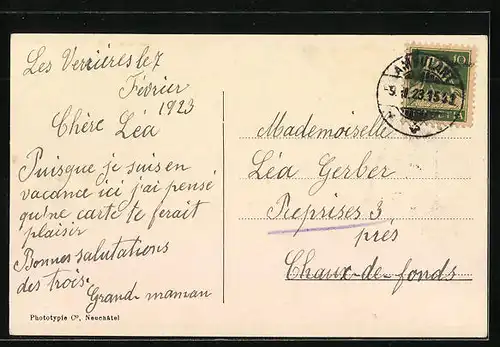 Les Verrières le 7
Février
1923
Chère Léa
Puisque je suis en
vacance ici j'ai pensé
qu'une carte te ferait
plaisir
Bonnes salutations
des trois.
Grand-maman
Phototypie Co, Neuchâtel
10
AMBULANT
9. II. 23. 15
Mademoiselle
Léa Gerber
Reprises 3
près
Chaux-de-fonds